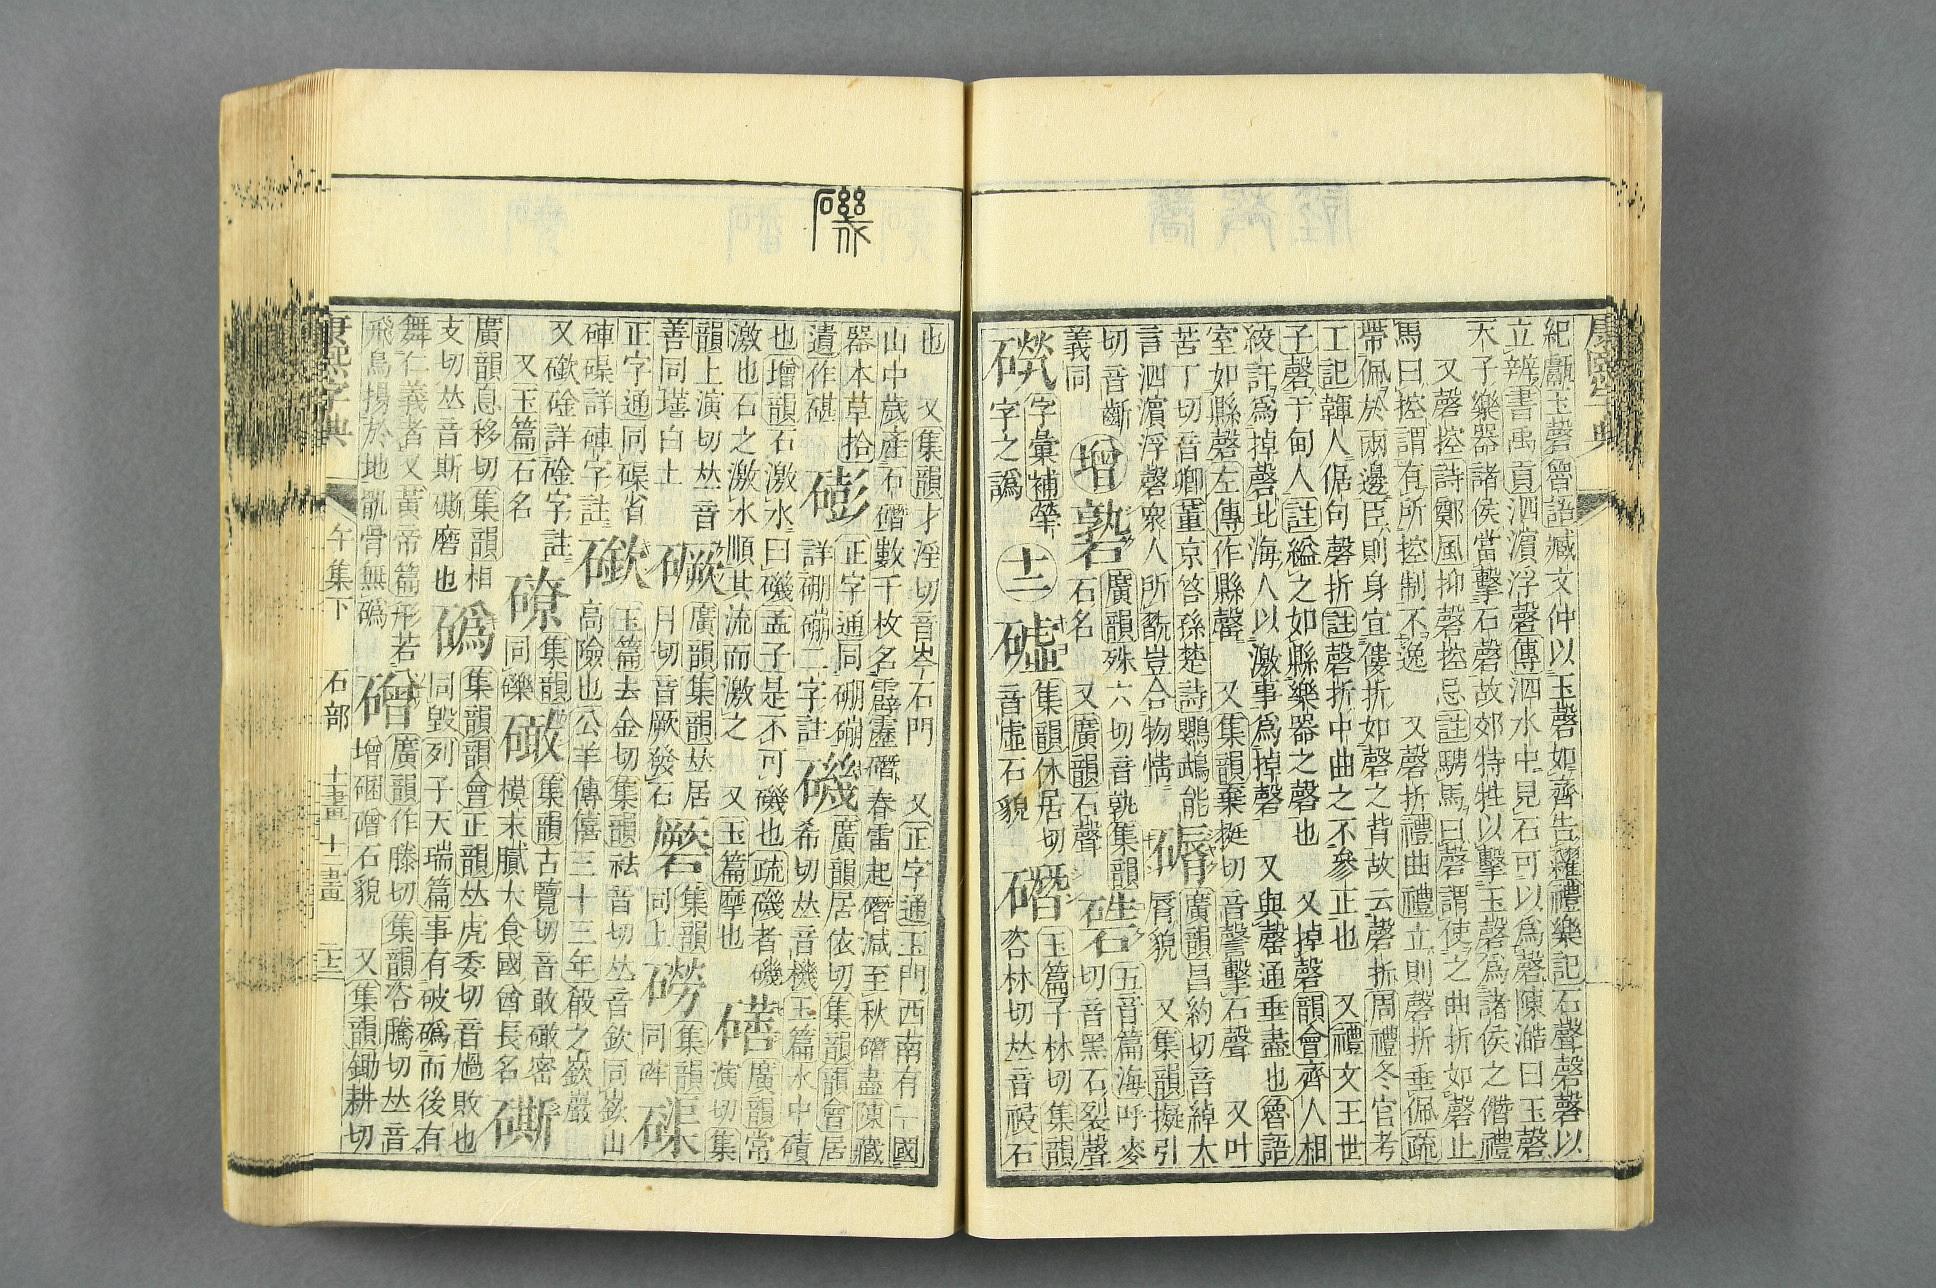 康熙字典
紀甗玉磬魯語臧文仲以玉磬如齊告糴禮樂記石聲磬磬以
立辨書禹貢泗濱浮磬傳泗水中見石可以爲磬陳澔曰玉磬
天子樂器諸侯當擊石磬故郊特牲以擊玉磬爲諸侯之僭禮
又磬控詩鄭風抑磬控忌註騁馬曰磬謂使之曲折如磬止
馬曰控謂有所控制不逸 又磬折禮曲禮立則磬折垂佩疏
帶佩於兩邊臣則身宜僂折如磬之背故云磬折周禮冬官考
工記韗人倨句磬折註磬折中曲之不參正也 又禮文王世
子磬于甸人註縊之如縣樂器之磬也 又掉磬韻會齊人相
絞訐爲掉磬北海人以激事爲掉磬 又與罄通垂盡也魯語
室如縣磬左傳作縣罄 又集韻棄挺切音謦擊石聲 又叶
苦丁切音卿董京答孫楚詩鸚鵡能 廣韻昌約切音綽大
言泗濱浮磬衆人所翫豈合物情 脣貌 又集韻擬引
切音齗 增 廣韻殊六切音孰集韻 五音篇海呼麥
義同 石名 又廣韻石聲 切音黑石裂聲
字彙補犖 十二 集韻休居切 玉篇子林切集韻
字之譌 音虛石貌 咨林切𠀤音祲石
磯
也 又集韻才淫切音岑石門 又正字通玉門西南有一國
山中歲產石䃡數千枚名霹靂䃡春雷起䃡減至秋䃡盡陳藏
器本草拾 正字通同硼磞 廣韻居依切集韻韻會居
遺作碪 詳硼磞二字註 磯 希切𠀤音機玉篇水中磧
也增韻石激水曰磯孟子是不可磯也疏磯者磯 廣韻常
激也石之激水順其流而激之 又玉篇摩也 演切集
韻上演切𠀤音 廣韻集韻𠀤居 集韻 集韻
善同墡白土 月切音厥發石 同上 磱 同
正字通同磲省 玉篇去金切集韻袪音切𠀤音欽同嶔山
硨磲詳硨字註 高險也公羊傳僖三十三年殽之嶔巖
又嶔碒詳碒字註 集韻 集韻古覽切音敢𥖔密
又玉篇石名 同礫 模末膩大食國酋長名
廣韻息移切集韻相 集韻韻會正韻𠀤虎委切音毀敗也
支切𠀤音斯磨也 䃣 同毀列子天瑞篇事有破䃣而後有
舞仁義者又黃帝篇形若 廣韻作滕切集韻咨騰切𠀤音
飛鳥揚於地骪骨無䃣 磳 增硱磳石貌 又集韻鋤耕切
康熙字典 午集下 石部 十一畫 十二畫